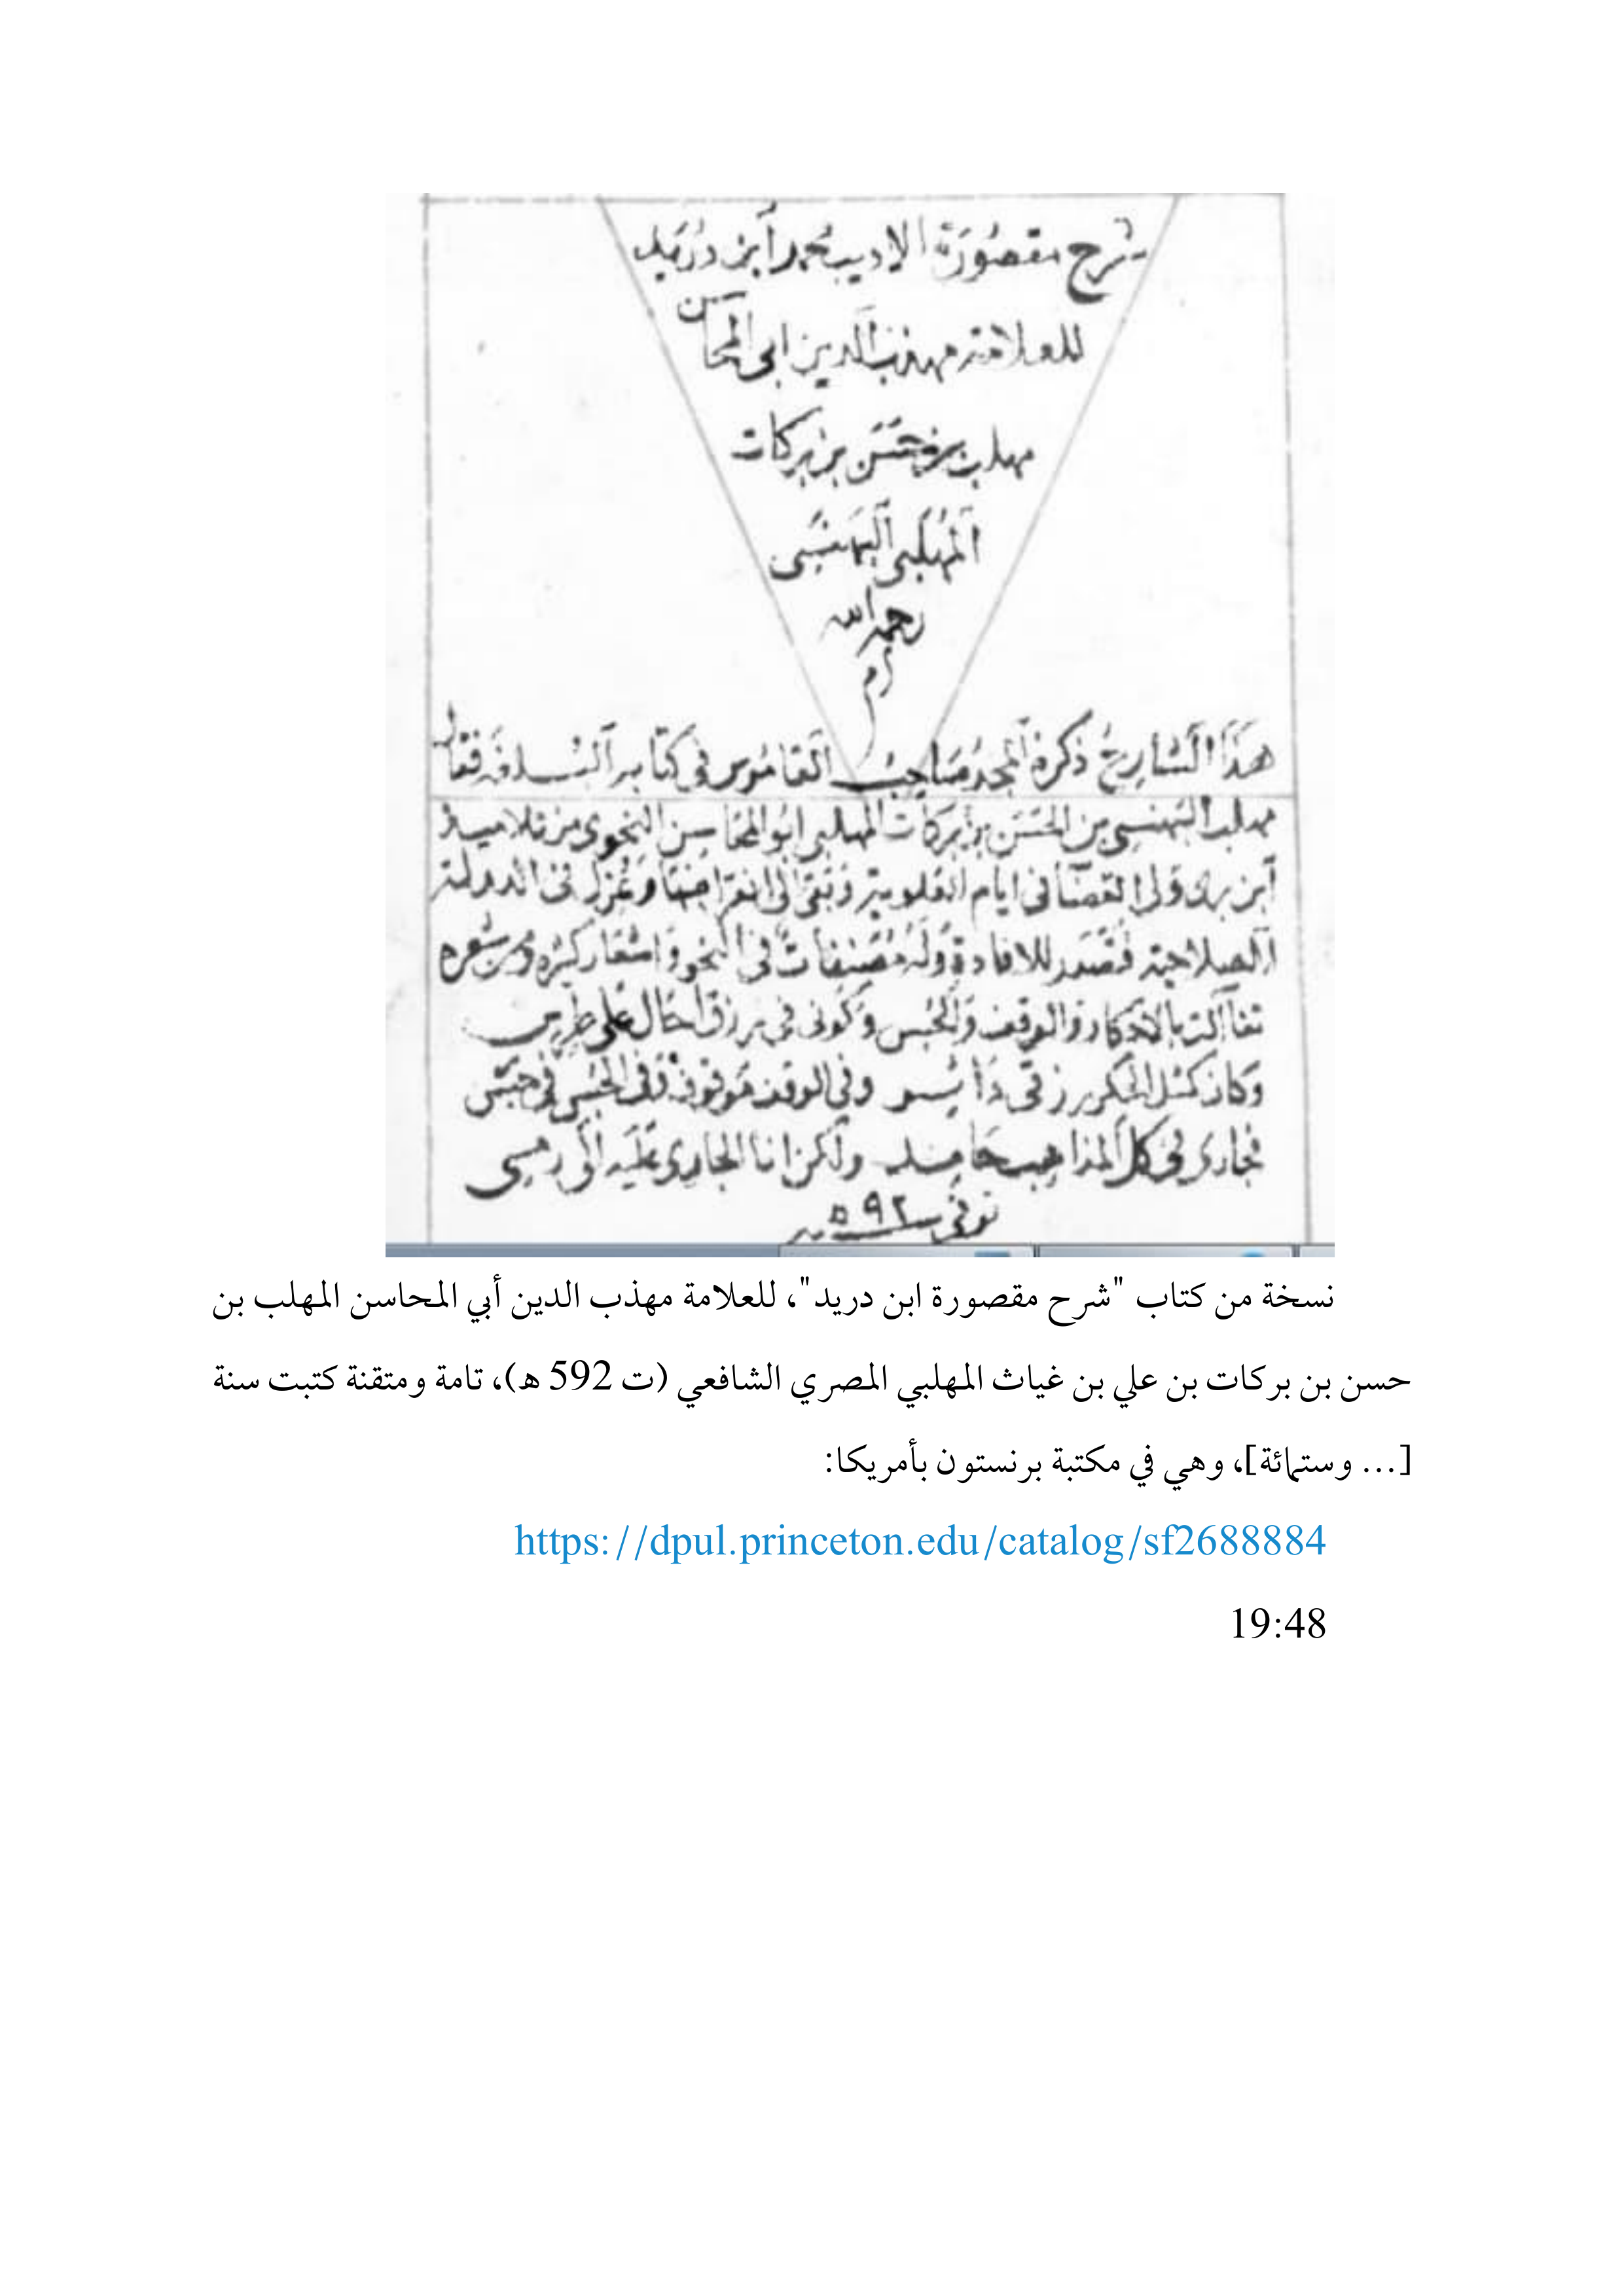 شرح مقصورة الاديب محمد ابن دريد
للعلامة مهذب الدين ابى المحاسن
مهلب بن حسن بن بركات
المهلبى البهنسى
رحمه الله
هذا الشارح ذكره المجد صاحب القاموس فى كتابه فقال
مهلب البهنسى بن الحسن بن بركات المهلبى ابو المحاسن النحوى من تلاميذ
ابن برى ولى القضا فى ايام العلوية وبقى الى انقراضها وعزل فى الدولة
الصلاحية فتصدر للافادة وله مصنفات فى النحو واشعار كثيره ومن شعره
بالاحكار والوقف والحبس وكونى فى رزق احال على
وكان كمثل الحكر رزقى دا وفى الوقف موقوفا وفى الحبس فى حبس
فجارى فى كل المذاهب ولكن انا الجارى عليه
توفى سنة ٥٩٢
نسخة من كتاب "شرح مقصورة ابن دريد"، للعلامة مهذب الدين أبي المحاسن المهلب بن
حسن بن بركات بن علي بن غياث المهلبي المصري الشافعي (ت 592 هـ)، تامة ومتقنة كتبت سنة
[... وستمائة]، وهي في مكتبة برنستون بأمريكا:
https://dpul.princeton.edu/catalog/sf2688884
19:48